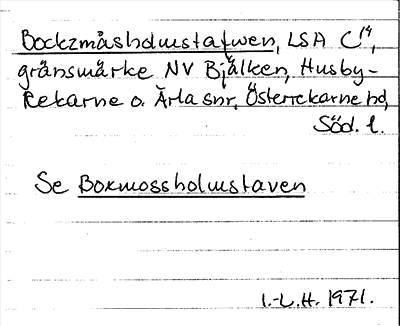 Bockzmåsholmstafwen, LSA C¹⁴,
gränsmärke NV Bjälken, Husby-
Rekarne o. Ärla snr, Österrekarne hd,
Söd. l.
Se Boxmossholmstaven
I.-L.H. 1971.